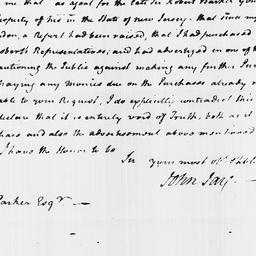 me that as agent for the late Sir Robert Barker you
property of his in the State of New Jersey. that
a Report had been raised, that I had purchased
Robert's Representatives; and had advertized in one of the
cautioning the Public against making any further Pur
paying any Monies due on the Purchases already
able to your Request, I do explicitly contradict this
declare that it is entirely void of Truth, both as it
and also the advertisement above mentioned
I have the Honor to be
Sir your most obt.
John Jay.—
Parker Esqr.—